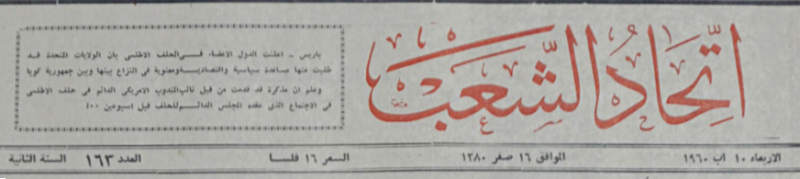 اتحاد الشعب
باريس ـ اعلنت الدول الاعضاء في الحلف الاطلسي بان الولايات المتحدة قد
طلبت منها مساعدة سياسية واقتصادية ومعنوية في النزاع بينها وبين جمهورية كوبا
وعلم ان مذكرة قد قدمت من قبل نائب المندوب الامريكي الدائم في حلف الاطلسي
في الاجتماع الذي عقده المجلس الدائم للحلف قبل اسبوعين ٠٠
الاربعاء ١٠ اب ١٩٦٠ الموافق ١٦ صفر ١٣٨٠ السعر ١٦ فلسا العدد ١٦٣ السنة الثانية